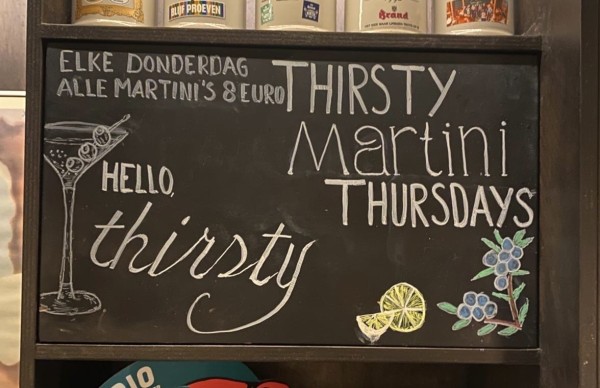 BLIJF PROEVEN
Brand
ELKE DONDERDAG
ALLE MARTINI'S 8 EURO
THIRSTY
Martini
THURSDAYS
HELLO,
thirsty